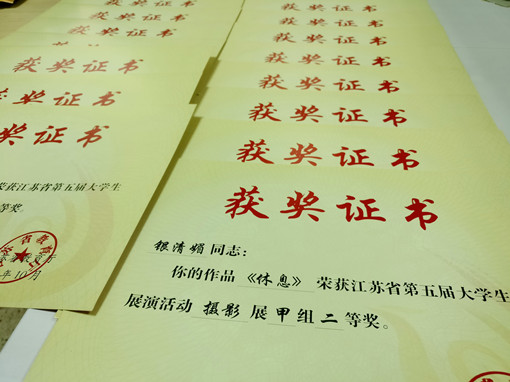 获奖证书
获奖证书
获奖证书
获奖证书
获奖证书
获奖证书
荣获江苏省第五届大学生
等奖。
10月
获奖证书
获奖证书
获奖证书
获奖证书
获奖证书
获奖证书
获奖证书
获奖证书
银清媚同志:
你的作品《休息》荣获江苏省第五届大学生
展演活动 摄影 展甲组二等奖。